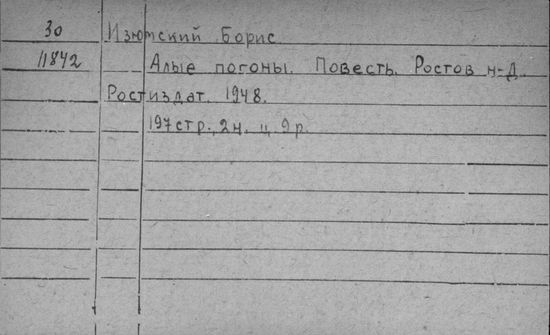 30 Изюмский Борис
11842 Алые погоны. Повесть. Ростов н-Д.
Ростиздат. 1948.
197 стр., 2н. ц. 9 р.